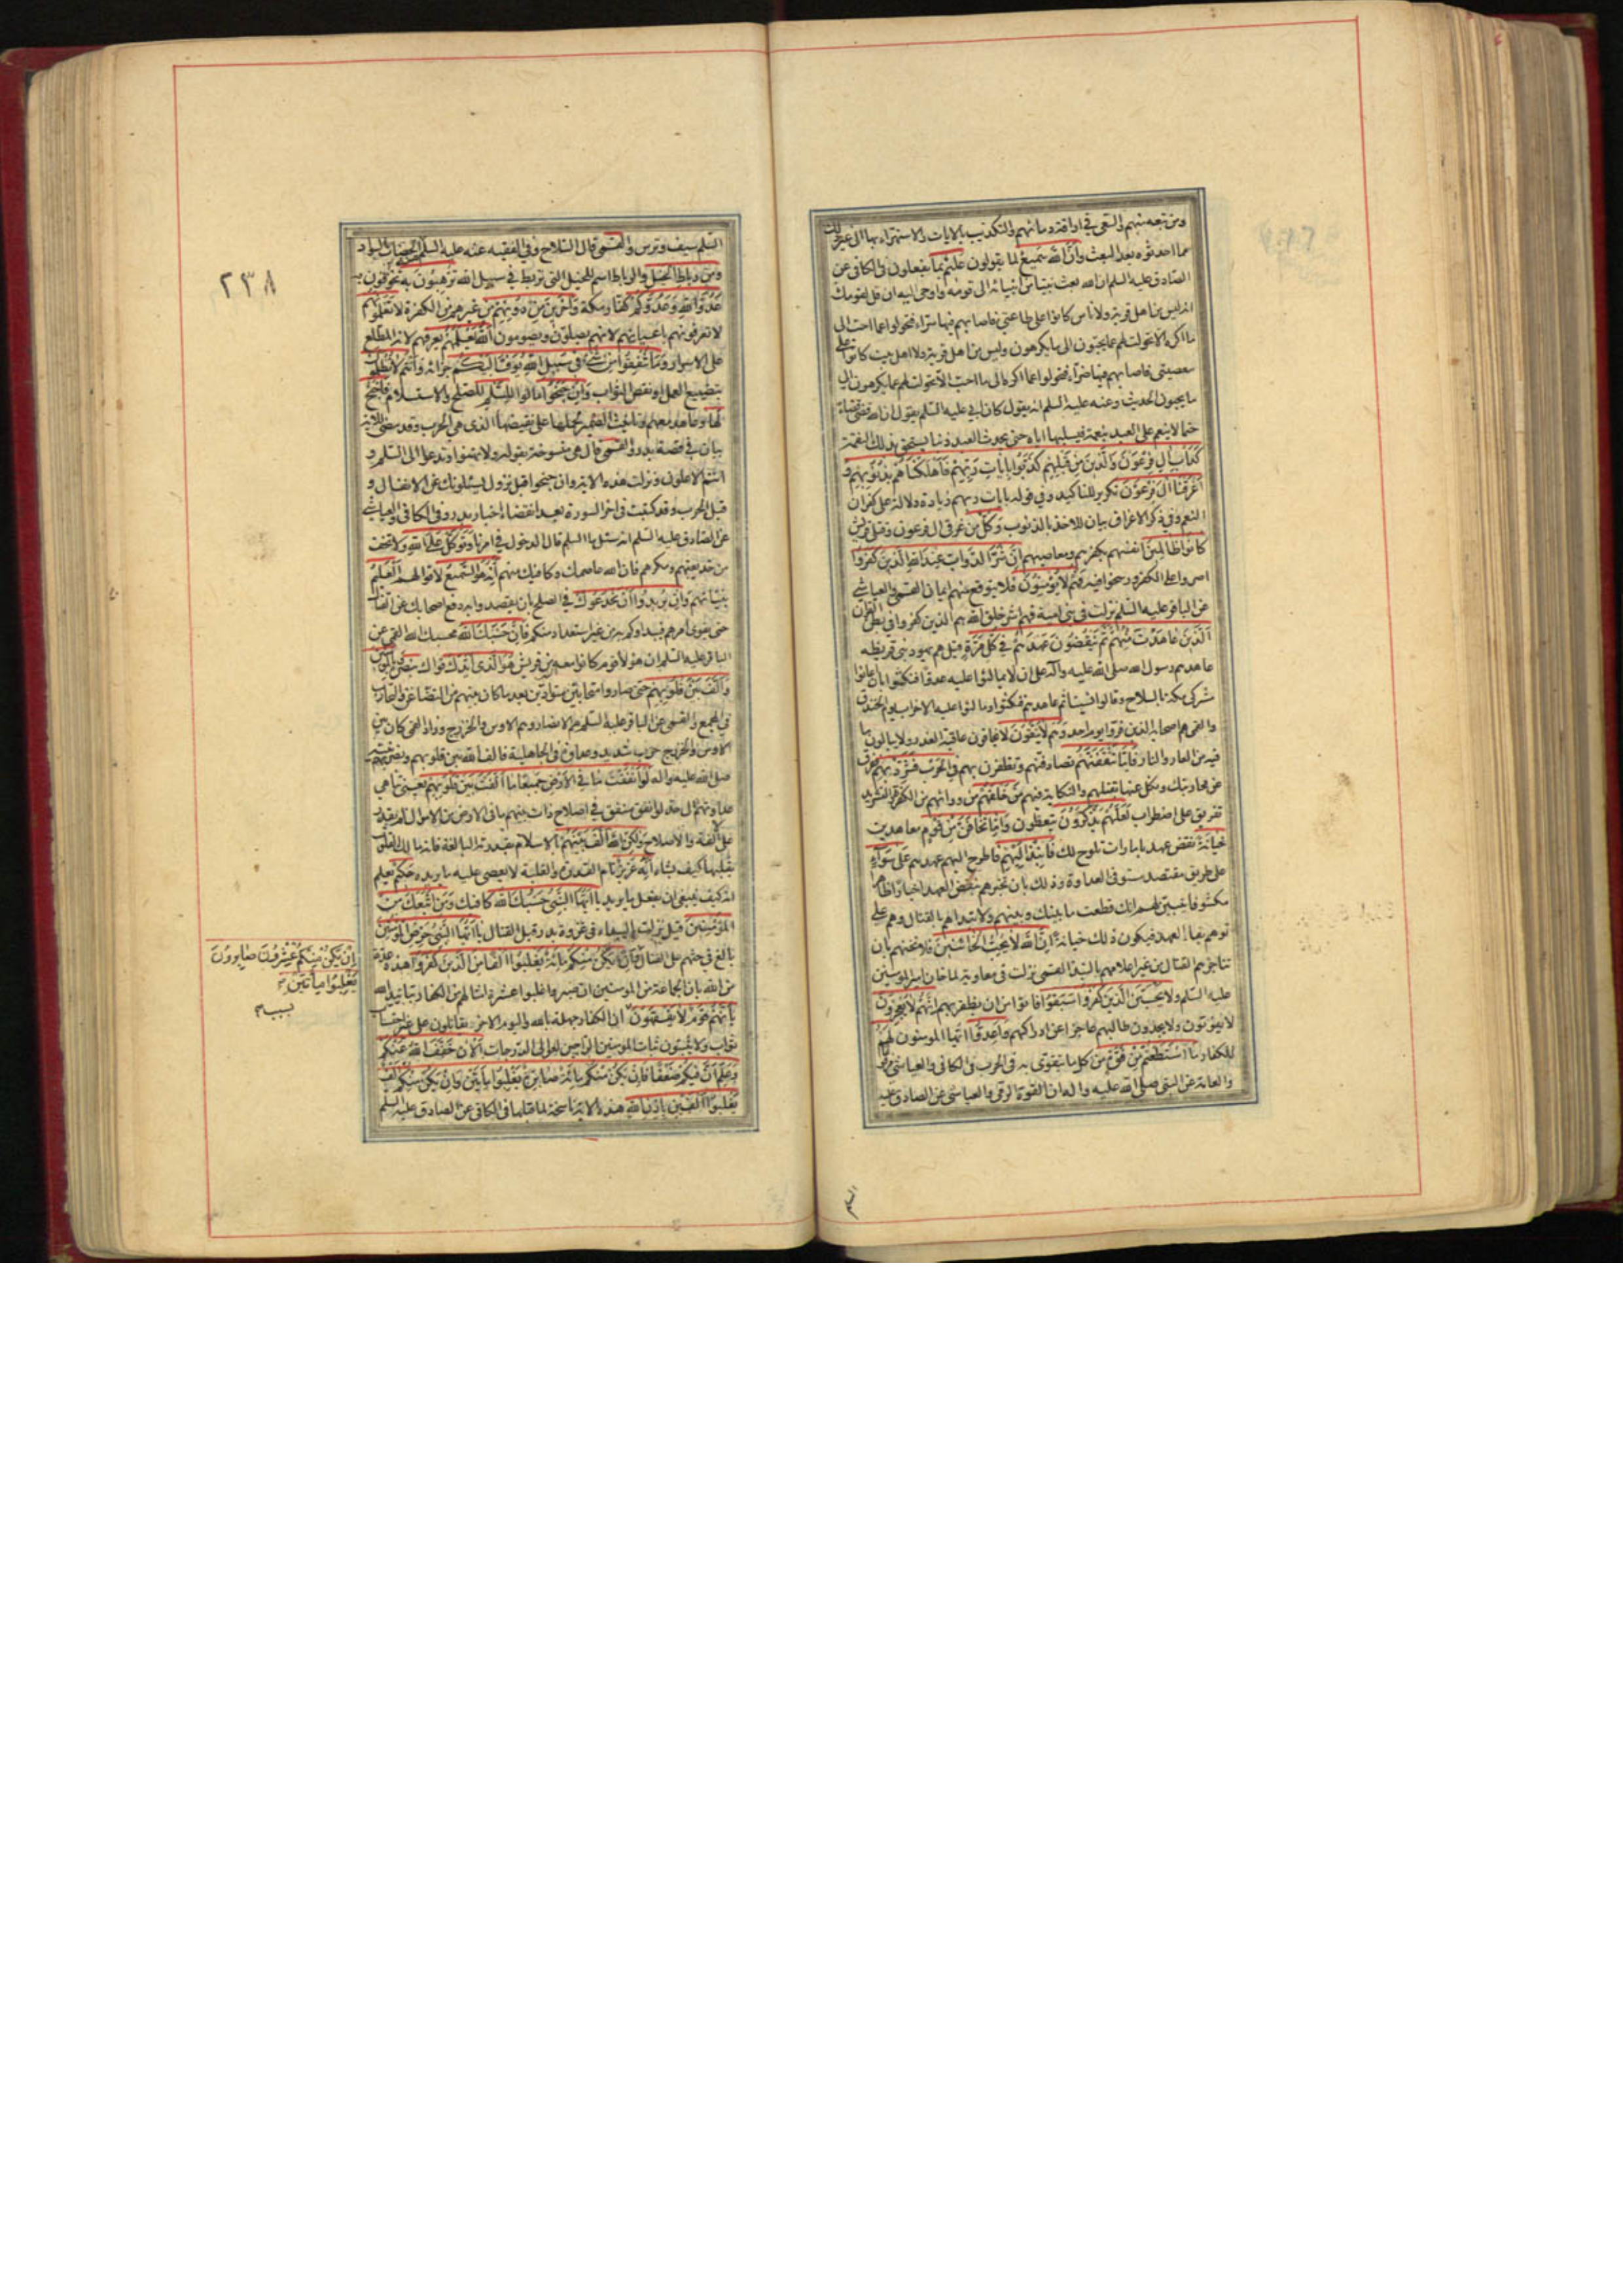 ومن تبعه منهم والسعي في اراقة دمائهم والتكذيب بالايات والاستهزاء بها الى غير ذلك
مما احدثوه بعد البعث وَاَنَّ اللّهَ سَميعٌ لما يقولون عَليمٌ بما يفعلون في الكافي عن
الصادق عليه السلم ان الله بعث نبيّا من انبيائه الى قومه واوحى اليه ان قل لقومك
انه ليس من اهل قرية ولا ناس كانوا على طاعتي فاصابهم فيها سرّاء فتحولوا عما احب الى
ما اكره الا تحولت لهم عما يحبون الى ما يكرهون وليس من اهل قرية ولا اهل بيت كانوا على
معصيتي فاصابهم فيها ضرّاء فتحولوا عما اكره الى ما احبّ الا تحولت لهم عما يكرهون الى
ما يحبون الحديث وعنه عليه السلم انه يقول كان ابي عليه السلم يقول ان الله قضى قضاء
حتما لا ينعم على العبد بنعمة فيسلبها اياه حتى يحدث العبد ذنبا يستحق بذلك النقمة
كَدَأْبِ آلِ فِرْعَوْنَ وَالَّذينَ مِنْ قَبْلِهِمْ كَذَّبُوا بِاياتِ رَبِّهِمْ فَاَهْلَكْناهُمْ بِذُنُوبِهِمْ وَ
اَغْرَقْنا آلَ فِرْعَوْنَ تكرير للتاكيد وفي قوله بايات ربهم زيادة دلالة على كفران
النعم وفي ذكر الاغراق بيان للاخذ بالذنوب وَكُلٌّ من غرقى ال فرعون وقتلى قريش
كانُوا ظالِمينَ انفسهم بكفرهم ومعاصيهم اِنَّ شَرَّ الدَّوابِّ عِنْدَ اللهِ الَّذينَ كَفَرُوا
اصروا على الكفر ورسخوا فيه فَهُمْ لا يُؤْمِنُونَ فلا يتوقع منهم ايمان القمي والعياشي
عن الباقر عليه السلم نزلت في بني امية فهم شر خلق الله هم الذين كفروا في بطن القران
اَلَّذينَ عاهَدْتَ مِنْهُمْ ثُمَّ يَنْقُضُونَ عَهْدَهُمْ في كُلِّ مَرَّةٍ قيل هم يهود بني قريظه
عاهدهم رسول الله صلى الله عليه وآله على ان لا يمالئوا عليه عدوّا فنكثوا بان اعانوا
مشركي مكة بالسلاح وقالوا نسينا ثم عاهدهم فنكثوا ومالئوا عليه الاحزاب يوم الخندق
والقمي هم اصحابه الذين فرّوا يوم احد وَهُمْ لا يَتَّقُونَ لا يخافون عاقبة الغدر ولا يبالون ما
فيه من العار والنار فَاِمّا تَثْقَفَنَّهُمْ تصادفنهم وتظفرن بهم فِي الْحَرْبِ فَشَرِّدْ بِهِمْ ففرّق
عن محاربتك ونكل عنها بقتلهم والنكاية فيهم مَنْ خَلْفَهُمْ من ورائهم من الكفرة والتشريد
تفريق على اضطراب لَعَلَّهُمْ يَذَّكَّرُونَ يتعظون وَاِمّا تَخافَنَّ مِنْ قَوْمٍ معاهدين
خِيانَةً نقض عهد بامارات تلوح لك فَانْبِذْ اِلَيْهِمْ فاطرح اليهم عهدهم عَلى سَواءٍ
على طريق مقتصد مستو في العداوة وذلك بان تخبرهم بنقض العهد اخبارا ظاهرا
مكشوفا يتبين لهم انك قطعت ما بينك وبينهم ولا تبداهم بالقتال وهم على
توهم بقاء العهد فيكون ذلك خيانة اِنَّ اللهَ لا يُحِبُّ الْخائِنينَ فلا تخنهم بان
تناجزهم القتال من غير اعلامهم بالنبذ القمي نزلت في معاوية لما خان امير المؤمنين
عليه السلم وَلا يَحْسَبَنَّ الَّذينَ كَفَرُوا سَبَقُوا فاتوا من ان يظفر بهم اِنَّهُمْ لا يُعْجِزُونَ
لا يفوتون ولا يجدون طالبهم عاجزا عن ادراكهم وَاَعِدُّوا ايّها المؤمنون لَهُمْ
للكفار مَا اسْتَطَعْتُمْ مِنْ قُوَّةٍ من كل ما يتقوى به في الحرب في الكافي والعياشي مرفوعا
والعامة عن النبي صلى الله عليه واله ان القوة الرمي والعياشي عن الصادق عليه
السلم
٢٣٨
السّلم سيف وترس والقمّي قال السّلاح وفي الفقيه عنه عليه السلم منه الخضاب بالسواد
وَمِنْ رِباطِ الْخَيْلِ والرباط اسم للخيل التي تربط في سبيل الله تُرْهِبُونَ بِه تخوفون به
عَدُوَّ اللهِ وَعَدُوَّكُمْ كفّار مكة وَآخَرينَ مِنْ دُونِهِمْ من غيرهم من الكفرة لا تَعْلَمُونَهُمُ
لا تعرفونهم باعيانهم لانهم يصلّون ويصومون اَللهُ يَعْلَمُهُمْ يعرفهم لانه المطلع
على الاسرار وَما تُنْفِقُوا مِنْ شَيْءٍ في سَبيلِ اللهِ يُوَفَّ اِلَيْكُمْ جزائه وَاَنْتُمْ لا تُظْلَمُونَ
بتضييع العمل او نقص الثواب وَاِنْ جَنَحُوا مالوا لِلسَّلْمِ للصلح والاستسلام فَاجْنَحْ
لَها وعاهد معهم وتانيث الضمير لحملها على نقيضها الذي هي الحرب وقد مضى للاية
بيان في قصة بدر والقمي قال هي منسوخة بقوله ولا تهنوا وتدعوا الى السلم و
انتم الاعلون ونزلت هذه الاية وان جنحوا قبل نزول يسئلونك عن الانفال و
قبل الحرب وقد كتبت في اخر السورة بعد انقضاء اخبار بدر وفي الكافي والعياشي
عن الصادق عليه السلم انه سئل ما السلم قال الدخول في امرنا وَتَوَكَّلْ عَلَى اللهِ ولا تخف
من خديعتهم ومكرهم فان الله عاصمك وكافيك منهم اِنَّهُ هُوَ السَّميعُ لاقوالهم اَلْعَليمُ
بنيّاتهم وَاِنْ يُريدُوا اَنْ يَخْدَعُوكَ في الصلح بان يقصدوا به دفع اصحابك عن القتال
حتى يقوى امرهم فيبداوكم به من غير استعداد منكم فَاِنَّ حَسْبَكَ اللهُ محسبك الله القمي عن
الباقر عليه السلم ان هؤلاء قوم كانوا معه من قريش هُوَ الَّذي اَيَّدَكَ قواك بِنَصْرِه وَبِالْمُؤْمِنينَ
وَاَلَّفَ بَيْنَ قُلُوبِهِمْ حتى صاروا متحابين متوادّين بعد ما كان بينهم من التضاغن والتحارب
في المجمع والقمي عن الباقر عليه السلم هم الانصار وهم الاوس والخزرج وزاد القمي كان بين
الاوس والخزرج حرب شديد وعداوة في الجاهلية فالف الله بين قلوبهم ونصر بهم نبيه
صلى الله عليه واله لَوْ اَنْفَقْتَ ما فِي الْاَرْضِ جَميعًا ما اَلَّفْتَ بَيْنَ قُلُوبِهِمْ يعني تناهي
عداوتهم الى حد لو انفق منفق في اصلاح ذات بينهم ما في الارض من الاموال لم يقدر
على الالفة والاصلاح وَلكِنَّ اللهَ اَلَّفَ بَيْنَهُمْ بالاسلام بقدرته البالغة فانه مالك القلوب
يقلبها كيف يشاء اِنَّهُ عَزيزٌ تام القدرة والغلبة لا يعصى عليه ما يريده حَكيمٌ يعلم
انه كيف ينبغي ان يفعل ما يريد يا اَيُّهَا النَّبِيُّ حَسْبُكَ اللهُ كافيك وَمَنِ اتَّبَعَكَ مِنَ
الْمُؤْمِنينَ قيل نزلت بالبيداء في غزوة بدر قبل القتال يا اَيُّهَا النَّبِيُّ حَرِّضِ الْمُؤْمِنينَ
بالغ في حثهم على القتال وَاِنْ يَكُنْ مِنْكُمْ مِائَةٌ يَغْلِبُوا اَلْفًا مِنَ الَّذينَ كَفَرُوا هذه عدة
من الله بان الجماعة من المؤمنين ان صبروا غلبوا عشرة امثالهم من الكفار بتاييد الله
بِاَنَّهُمْ قَوْمٌ لا يَفْقَهُونَ ان الكفار جهلة بالله واليوم الاخر يقاتلون على غير احتساب
ثواب ولا يثبتون ثبات المؤمنين الراجين لعوالي الدرجات اَلْآنَ خَفَّفَ اللهُ عَنْكُمْ
وَعَلِمَ اَنَّ فيكُمْ ضَعْفًا فَاِنْ يَكُنْ مِنْكُمْ مِائَةٌ صابِرَةٌ يَغْلِبُوا مِاَتَيْنِ وَاِنْ يَكُنْ مِنْكُمْ اَلْفٌ
يَغْلِبُوا اَلْفَيْنِ بِاِذْنِ اللهِ هذه الاية ناسخة لما قبلها في الكافي عن الصادق عليه السلم
اِنْ يَكُنْ مِنْكُمْ عِشْرُونَ صابِرُونَ
يَغْلِبُوا مِاَتَيْنِ